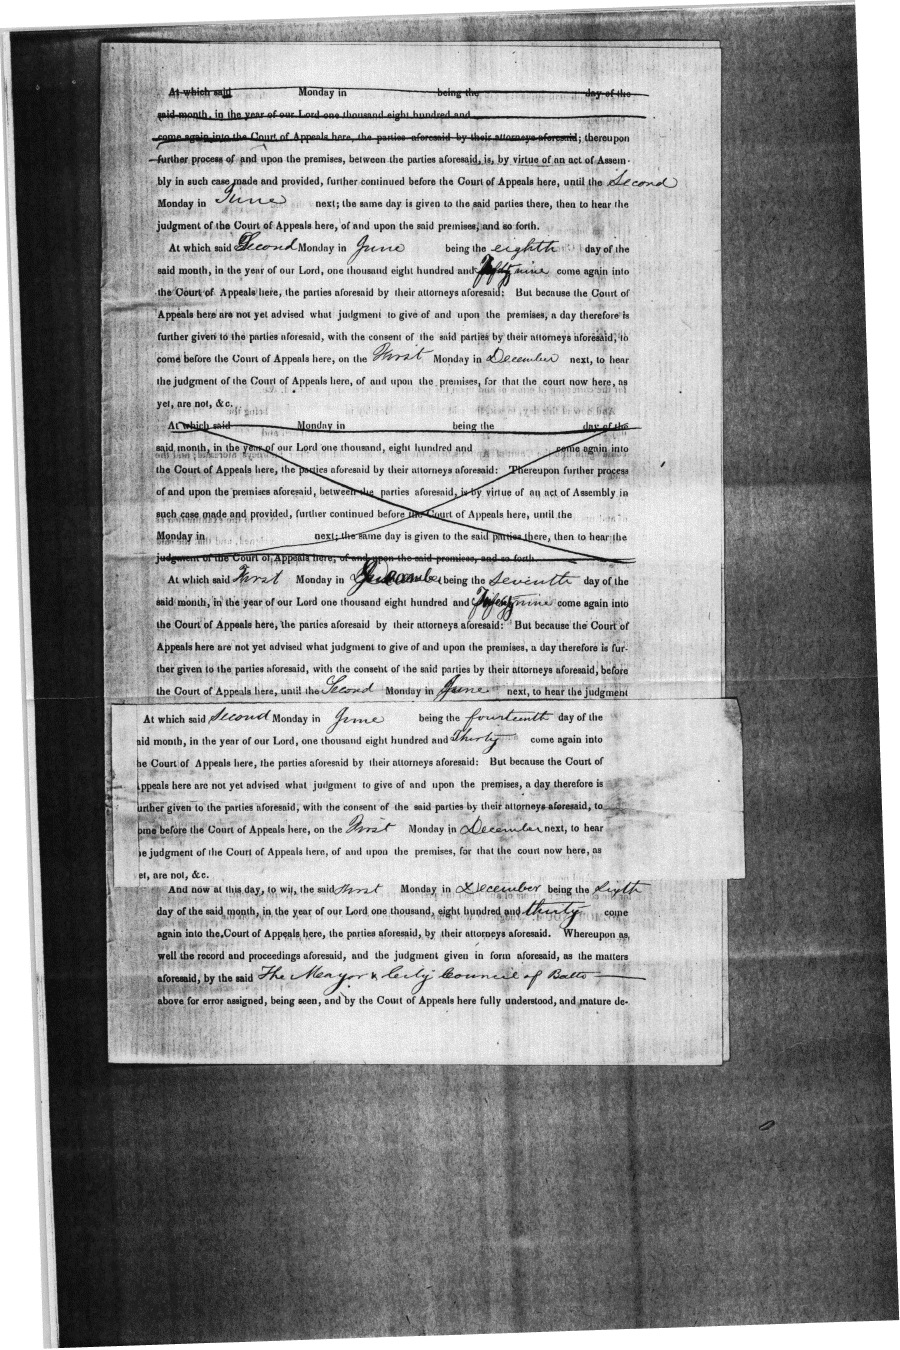 At which said Monday in being the day of the
said month, in the year of our Lord one thousand eight hundred and
come again into the Court of Appeals here, the parties aforesaid by their attorneys aforesaid; thereupon
further process of and upon the premises, between the parties aforesaid, is, by virtue of an act of Assem-
bly in such case made and provided, further continued before the Court of Appeals here, until the Second
Monday in June next; the same day is given to the said parties there, then to hear the
judgment of the Court of Appeals here, of and upon the said premises, and so forth.
At which said Second Monday in June being the eighth day of the
said month, in the year of our Lord, one thousand eight hundred and fifty nine come again into
the Court of Appeals here, the parties aforesaid by their attorneys aforesaid: But because the Court of
Appeals here are not yet advised what judgment to give of and upon the premises, a day therefore is
further given to the parties aforesaid, with the consent of the said parties by their attorneys aforesaid, to
come before the Court of Appeals here, on the First Monday in December next, to hear
the judgment of the Court of Appeals here, of and upon the premises, for that the court now here, as
yet, are not, &c.
At which said Monday in being the day of the
said month, in the year of our Lord one thousand, eight hundred and come again into
the Court of Appeals here, the parties aforesaid by their attorneys aforesaid: Thereupon further process
of and upon the premises aforesaid, between the parties aforesaid, is by virtue of an act of Assembly in
such case made and provided, further continued before the Court of Appeals here, until the
Monday in next; the same day is given to the said parties there, then to hear the
judgment of the Court of Appeals here, of and upon the said premises, and so forth.
At which said First Monday in December being the Seventh day of the
said month, in the year of our Lord one thousand eight hundred and fifty nine come again into
the Court of Appeals here, the parties aforesaid by their attorneys aforesaid: But because the Court of
Appeals here are not yet advised what judgment to give of and upon the premises, a day therefore is fur-
ther given to the parties aforesaid, with the consent of the said parties by their attorneys aforesaid, before
the Court of Appeals here, until the Second Monday in June next, to hear the judgment
At which said Second Monday in June being the fourteenth day of the
aid month, in the year of our Lord, one thousand eight hundred and Thirty come again into
he Court of Appeals here, the parties aforesaid by their attorneys aforesaid: But because the Court of
ppeals here are not yet advised what judgment to give of and upon the premises, a day therefore is
urther given to the parties aforesaid, with the consent of the said parties by their attorneys aforesaid, to
ome before the Court of Appeals here, on the First Monday in December next, to hear
e judgment of the Court of Appeals here, of and upon the premises, for that the court now here, as
et, are not, &c.
And now at this day, to wit, the said First Monday in December being the Sixth
day of the said month, in the year of our Lord one thousand, eight hundred and thirty come
again into the Court of Appeals here, the parties aforesaid, by their attorneys aforesaid. Whereupon as,
well the record and proceedings aforesaid, and the judgment given in form aforesaid, as the matters
aforesaid, by the said The Mayor & City Council of Balto
above for error assigned, being seen, and by the Court of Appeals here fully understood, and mature de-